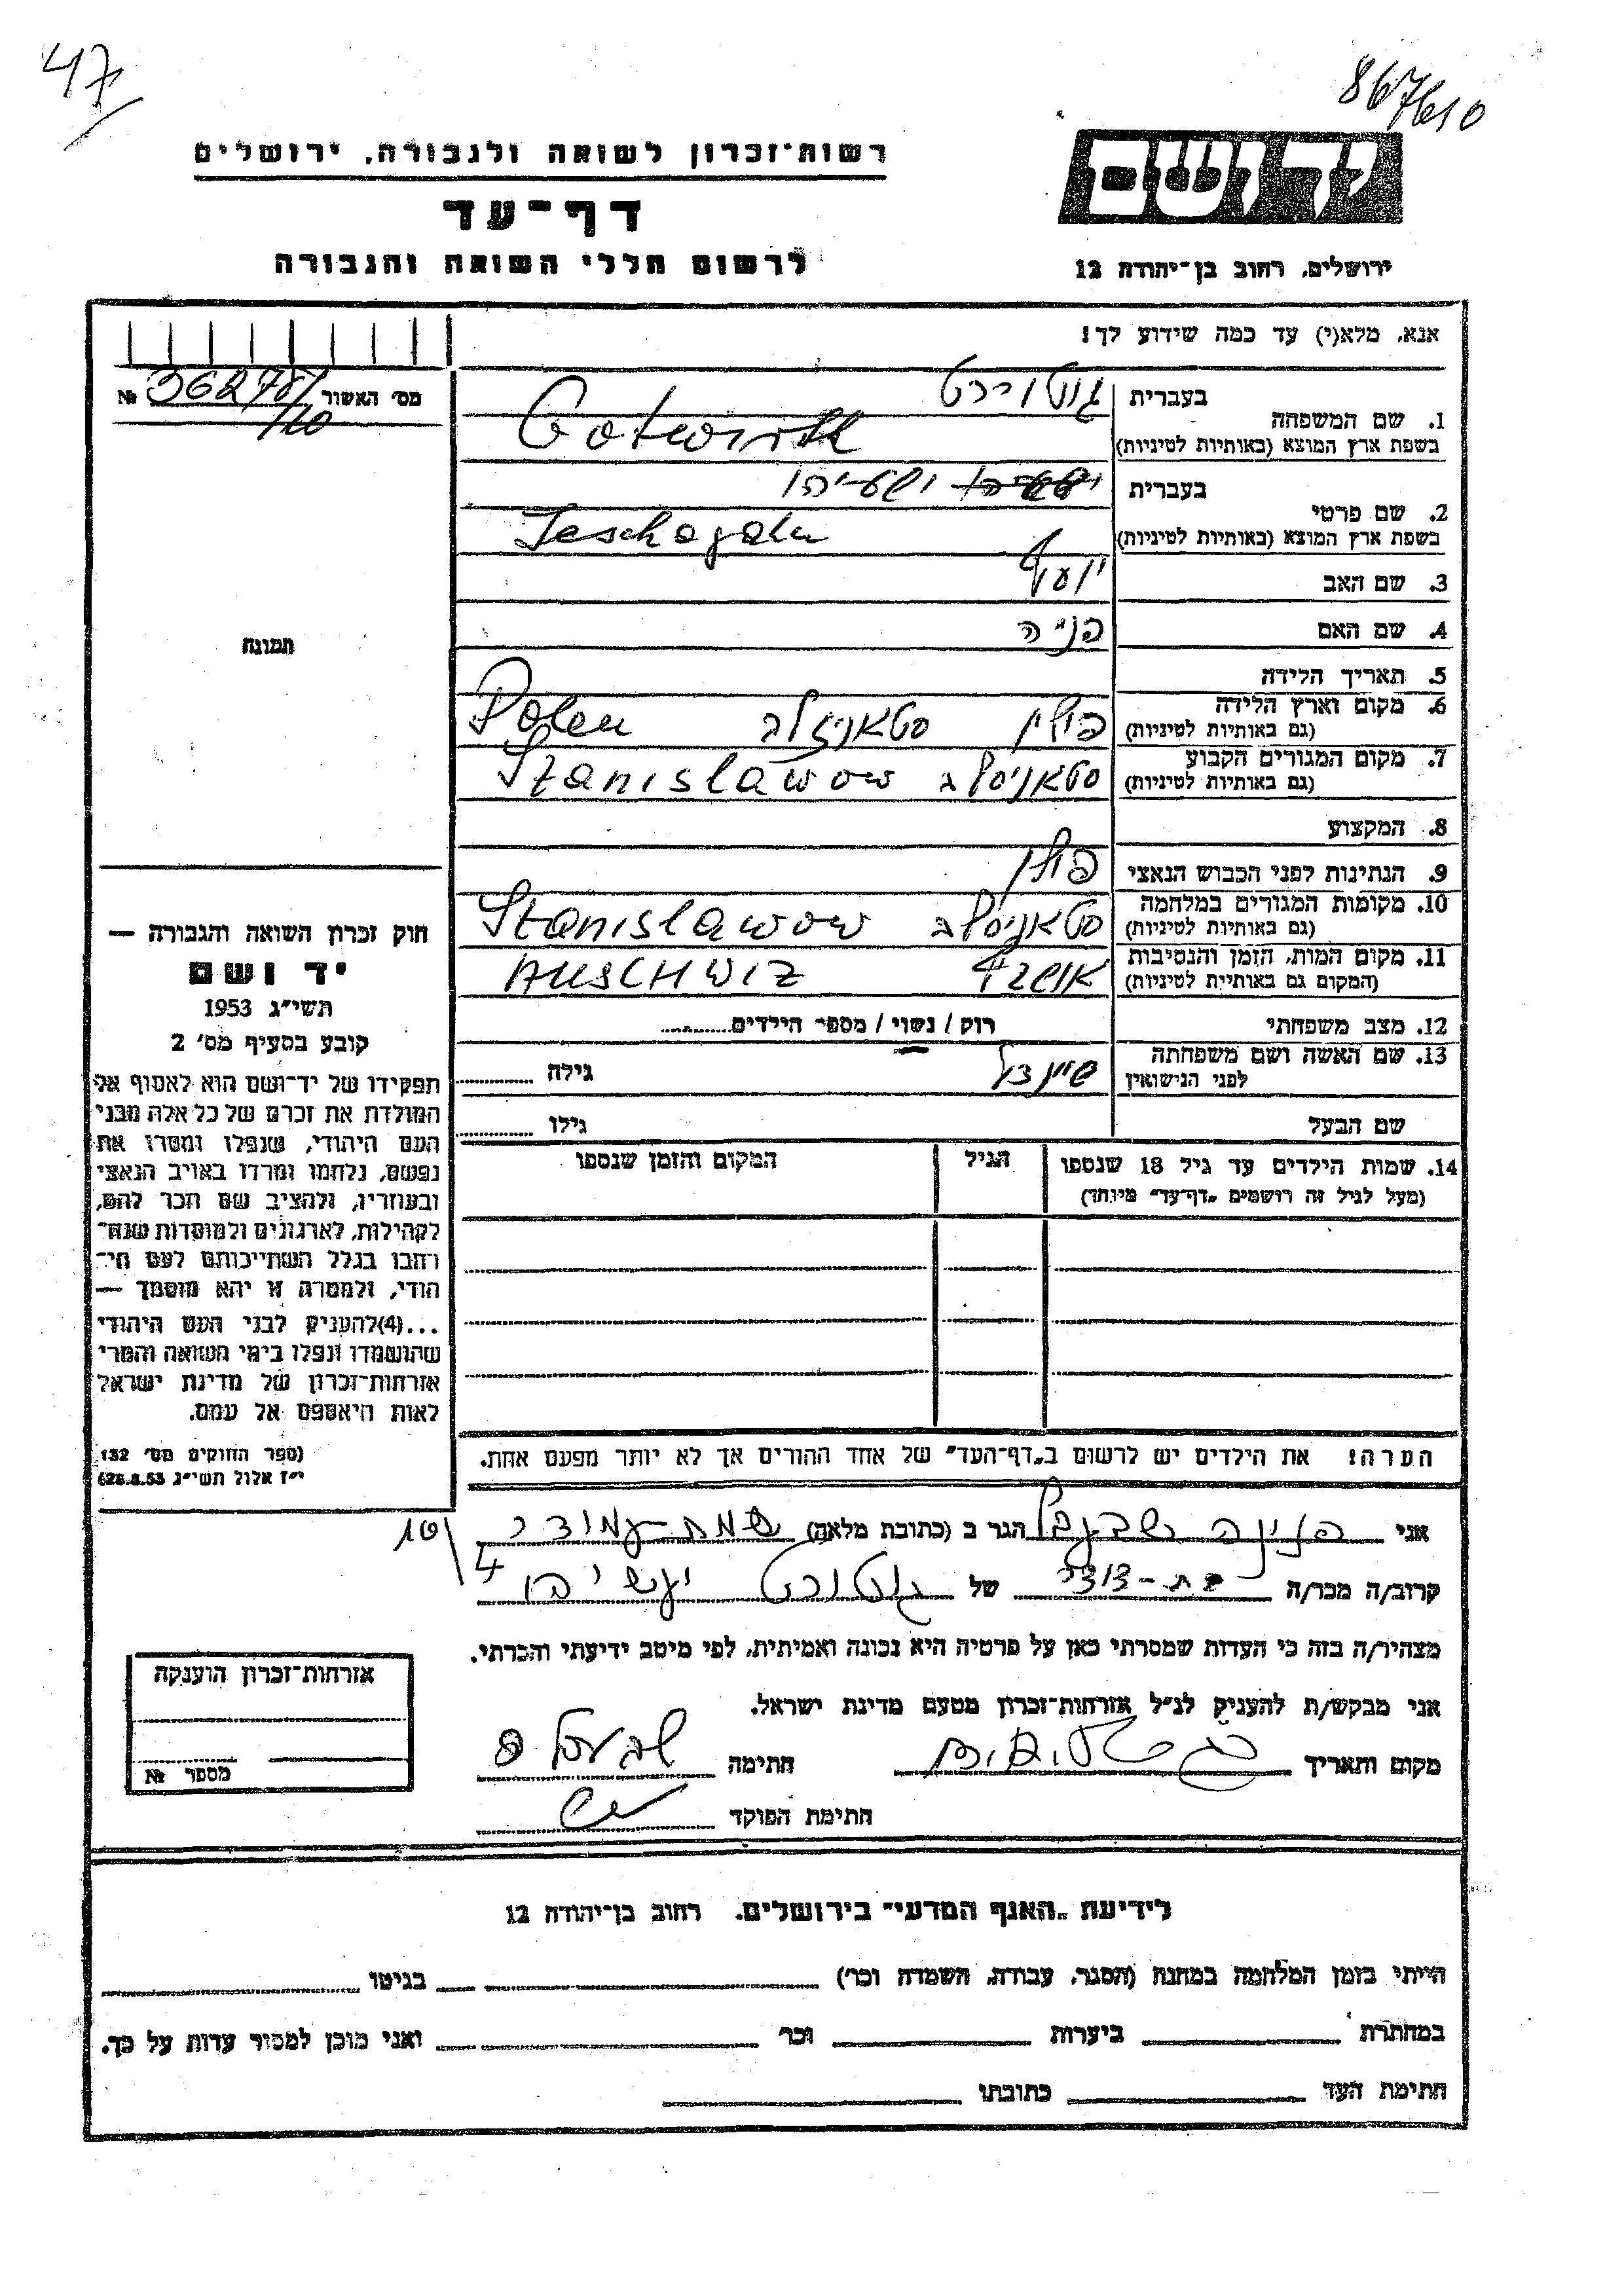 47
867610
רשות־זכרון לשואה ולגבורה, ירושלים
יד ושם
דף־עד
לרשום חללי השואה והגבורה
ירושלים, רחוב בן־יהודה 12
אנא, מלא(י) עד כמה שידוע לך!
מס׳ האשור № 36278/
/10
בעברית גוטוירט
1. שם המשפחה
בשפת ארץ המוצא (באותיות לטיניות) Gotwirth
בעברית ישעיהו
2. שם פרטי
בשפת ארץ המוצא (באותיות לטיניות) Jeschagahu
3. שם האב
4. שם האם פניה
5. תאריך הלידה
6. מקום וארץ הלידה פולין סטאניסלב Polen
(גם באותיות לטיניות)
7. מקום המגורים הקבוע סטאניסלב Stanislawow
(גם באותיות לטיניות)
8. המקצוע
9. הנתינות לפני הכבוש הנאצי פולין
10. מקומות המגורים במלחמה סטאניסלב Stanislawow
(גם באותיות לטיניות)
11. מקום המות, הזמן והנסיבות AUSCHWIZ
(המקום גם באותיות לטיניות)
12. מצב משפחתי רוק / נשוי / מספר הילדים
13. שם האשה ושם משפחתה שיינדל גילה
לפני הנישואין
שם הבעל גילו
14. שמות הילדים עד גיל 18 שנספו הגיל המקום והזמן שנספו
(מעל לגיל זה רושמים „דף־עד״ מיוחד)
הערה! את הילדים יש לרשום ב„דף־העד״ של אחד ההורים אך לא יותר מפעם אחת.
תמונה
חוק זכרון השואה והגבורה —
יד ושם
תשי״ג 1953
קובע בסעיף מס׳ 2
תפקידו של יד־ושם הוא לאסוף אל
המולדת את זכרם של כל אלה מבני
העם היהודי, שנפלו ומסרו את
נפשם, נלחמו ומרדו באויב הנאצי
ובעוזריו, ולהציב שם וזכר להם,
לקהילות, לארגונים ולמוסדות שנח־
רבו בגלל השתייכותם לעם הי־
הודי, ולמטרה זו יהא מוסמך —
...(4) להעניק לבני העם היהודי
שהושמדו ונפלו בימי השואה והמרי
אזרחות־זכרון של מדינת ישראל
לאות היאספם אל עמם.
(ספר החוקים מס׳ 132
י״ז אלול תשי״ג 28.8.53)
אני פנינה הגר ב (כתובת מלאה)
10/4
קרוב/ה מכר/ה בת-דודה של גוטוירט ישעיהו
מצהיר/ה בזה כי העדות שמסרתי כאן על פרטיה היא נכונה ואמיתית, לפי מיטב ידיעתי והכרתי.
אני מבקש/ת להעניק לנ״ל אזרחות־זכרון מטעם מדינת ישראל.
מקום ותאריך חתימה
חתימת הפוקד
אזרחות־זכרון הוענקה
מספר №
לידיעת „האגף המדעי״ בירושלים, רחוב בן־יהודה 12
הייתי בזמן המלחמה במחנה (הסגר, עבודה, השמדה וכר׳) בגיטו
במחתרת ביערות וכר׳ ואני מוכן למסור עדות על כך.
חתימת העד כתובתו